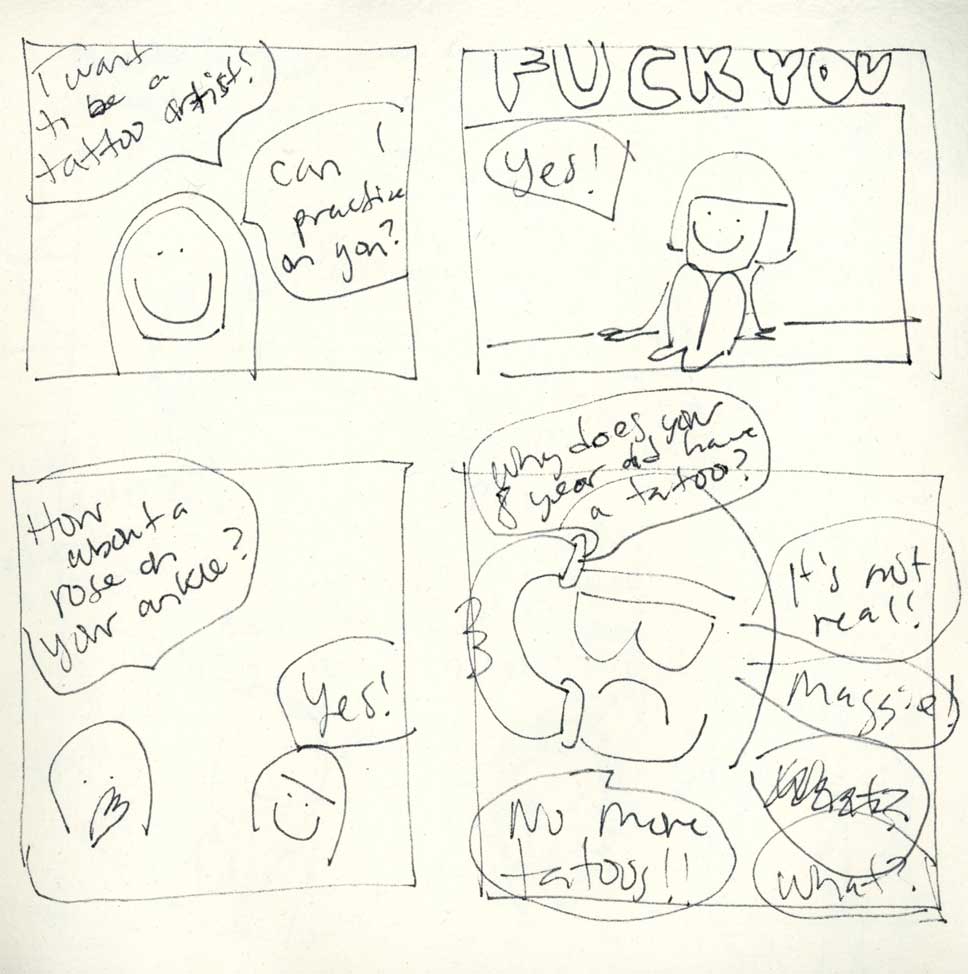 I want
to be a
tattoo artist!
can I
practice
on you?
FUCK YOU
Yes!
How
about a
rose on
your ankle?
Yes!
why does your
8 year old have
a tatoo?
It's not
real!
Maggie!
what?!
No more
tatoos!!